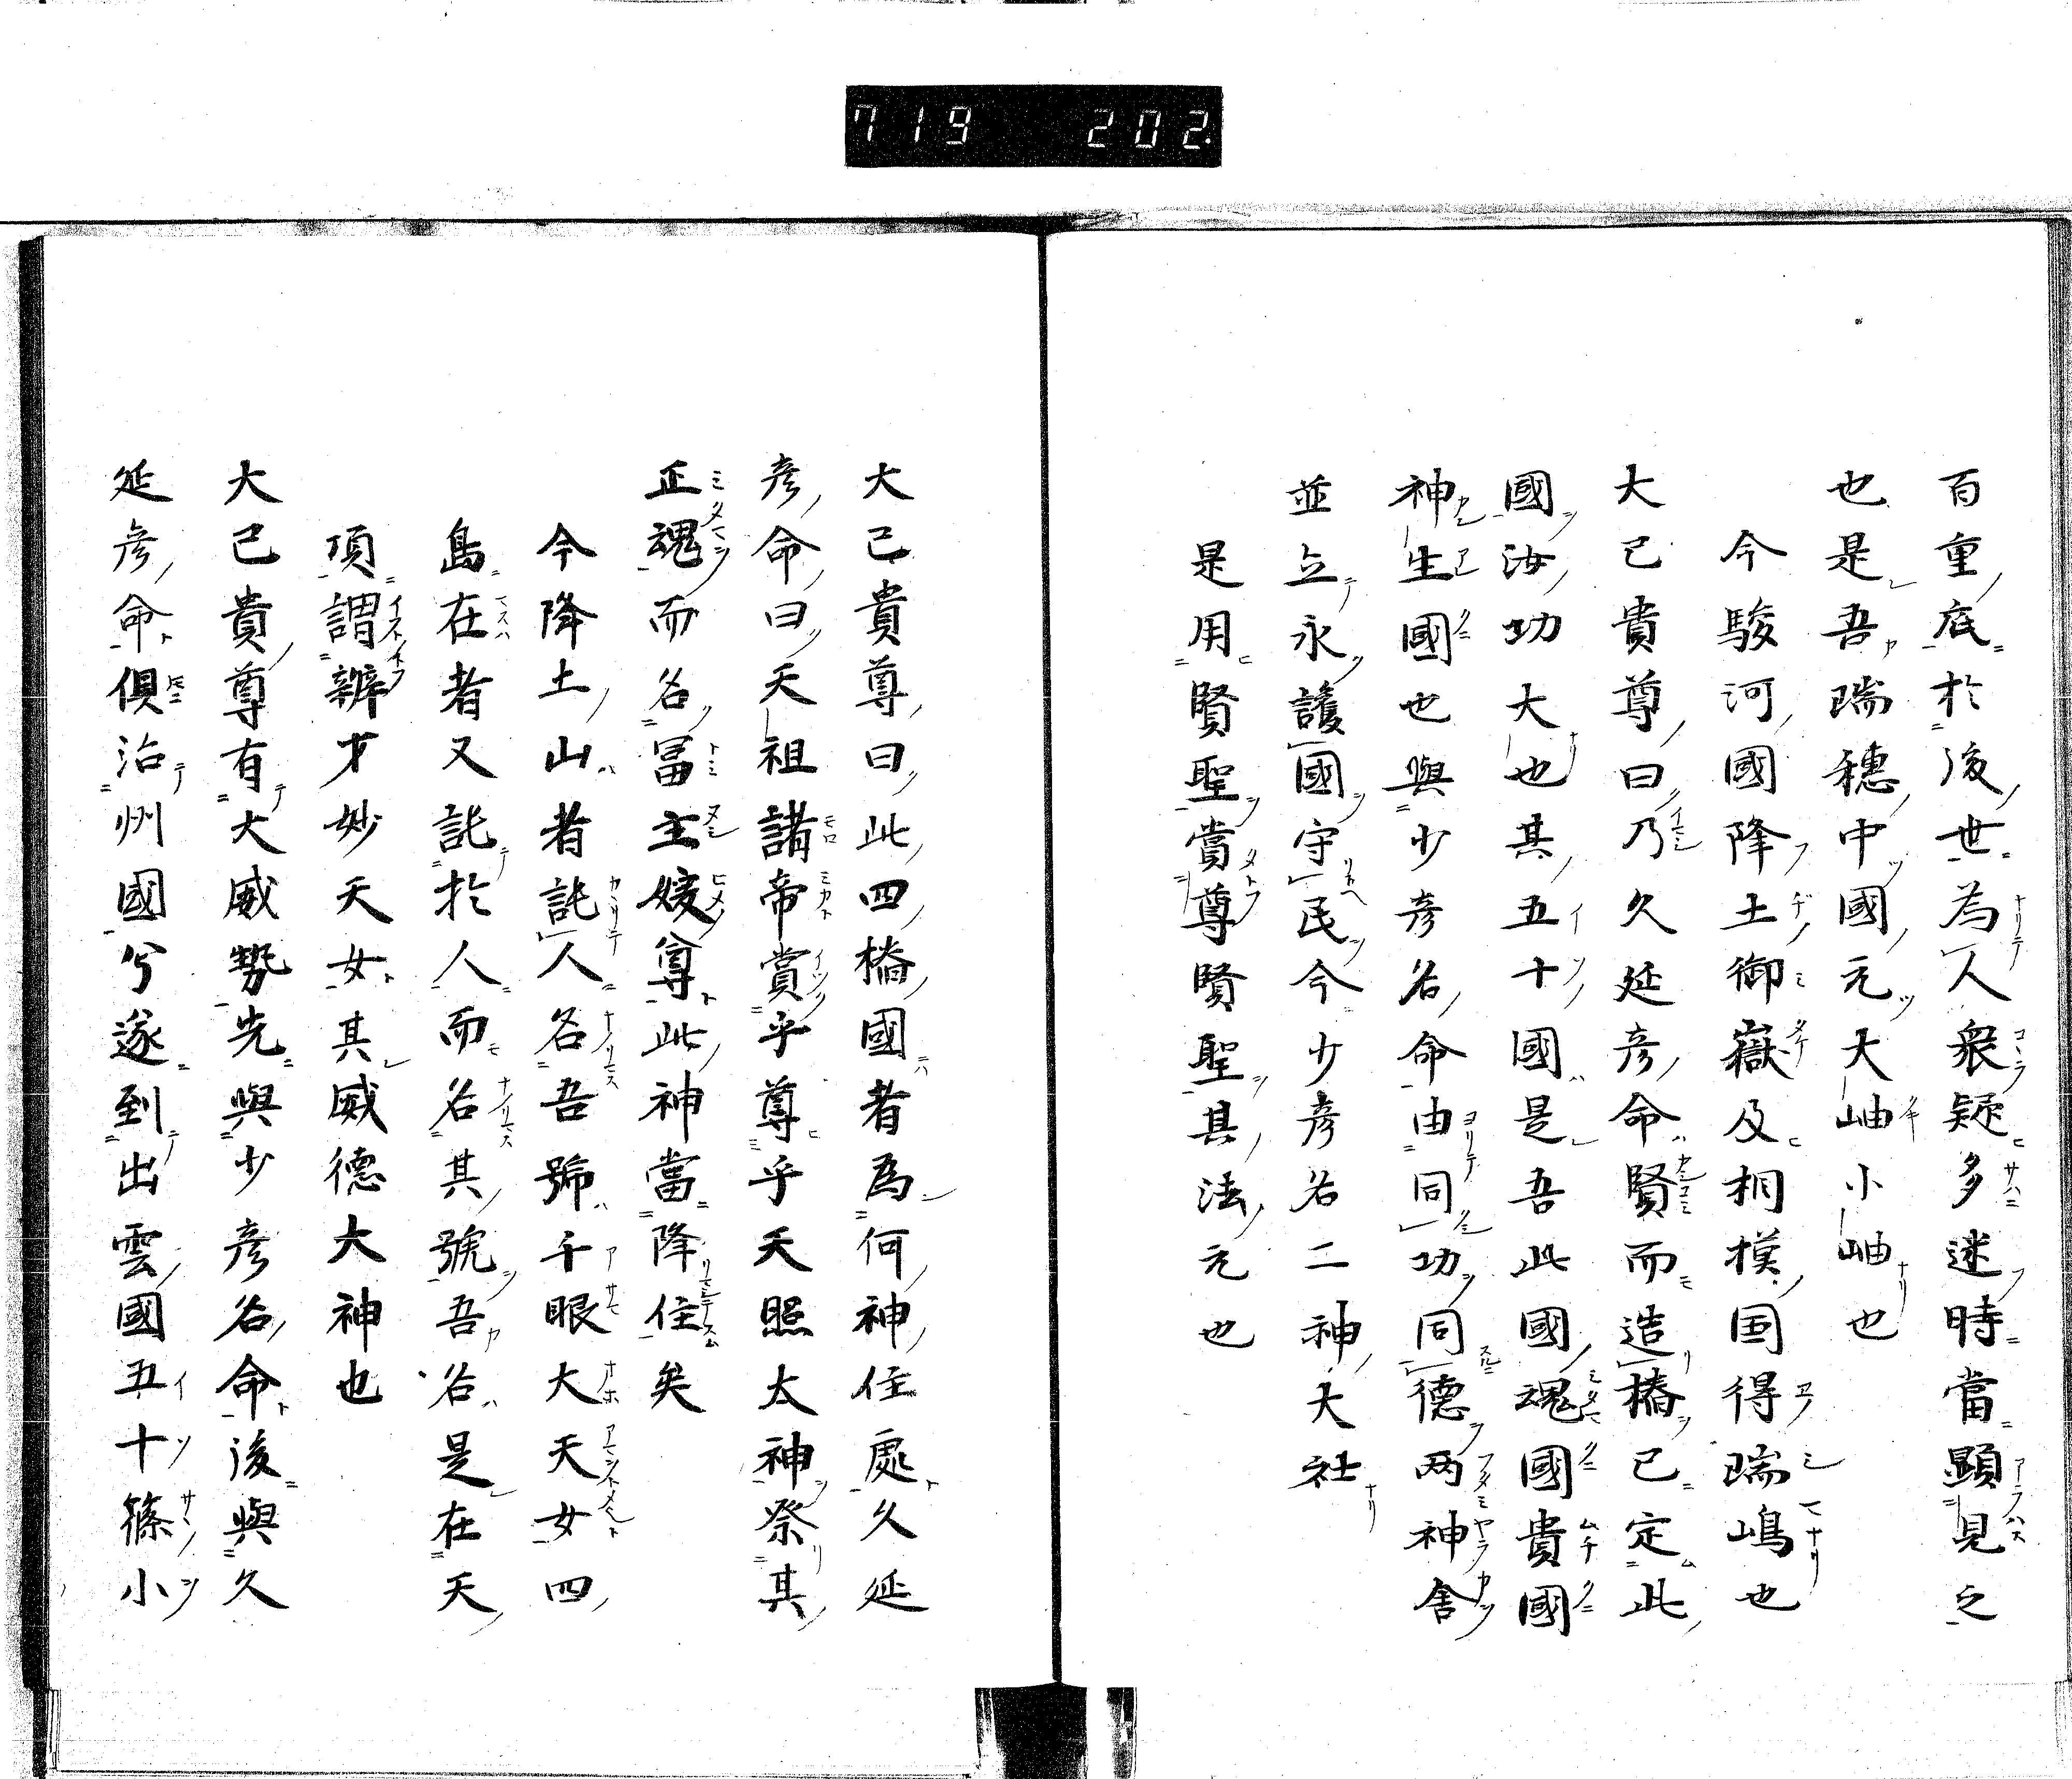 719 202
百重底於後世為人衆疑多迷時當顕見之
也是吾瑞穗中國元大岫小岫也
今駿河國降土御嶽及桐模国得瑞嶋也
大己貴尊曰乃久延彦命賢而造橋已定此
國汝功大也其五十國是吾此國魂國貴國
神生國也與少彦名命由同功同德两神舎
並立永護國守民今少彦名二神大社
是用賢聖賞尊賢聖其法元也
大己貴尊曰此四橋國者為何神住處久延
彦命曰天祖諸帝賞乎尊乎天照太神祭其
正魂而名冨主媛尊此神當降住矣
今降土山者託人名吾號千眼大天女四
島在者又託於人而名其號吾名是在天
頂謂辨才妙天女其威德大神也
大己貴尊有大威勢先與少彦名命後與久
延彦命俱治州國兮遂到出雲國五十篠小